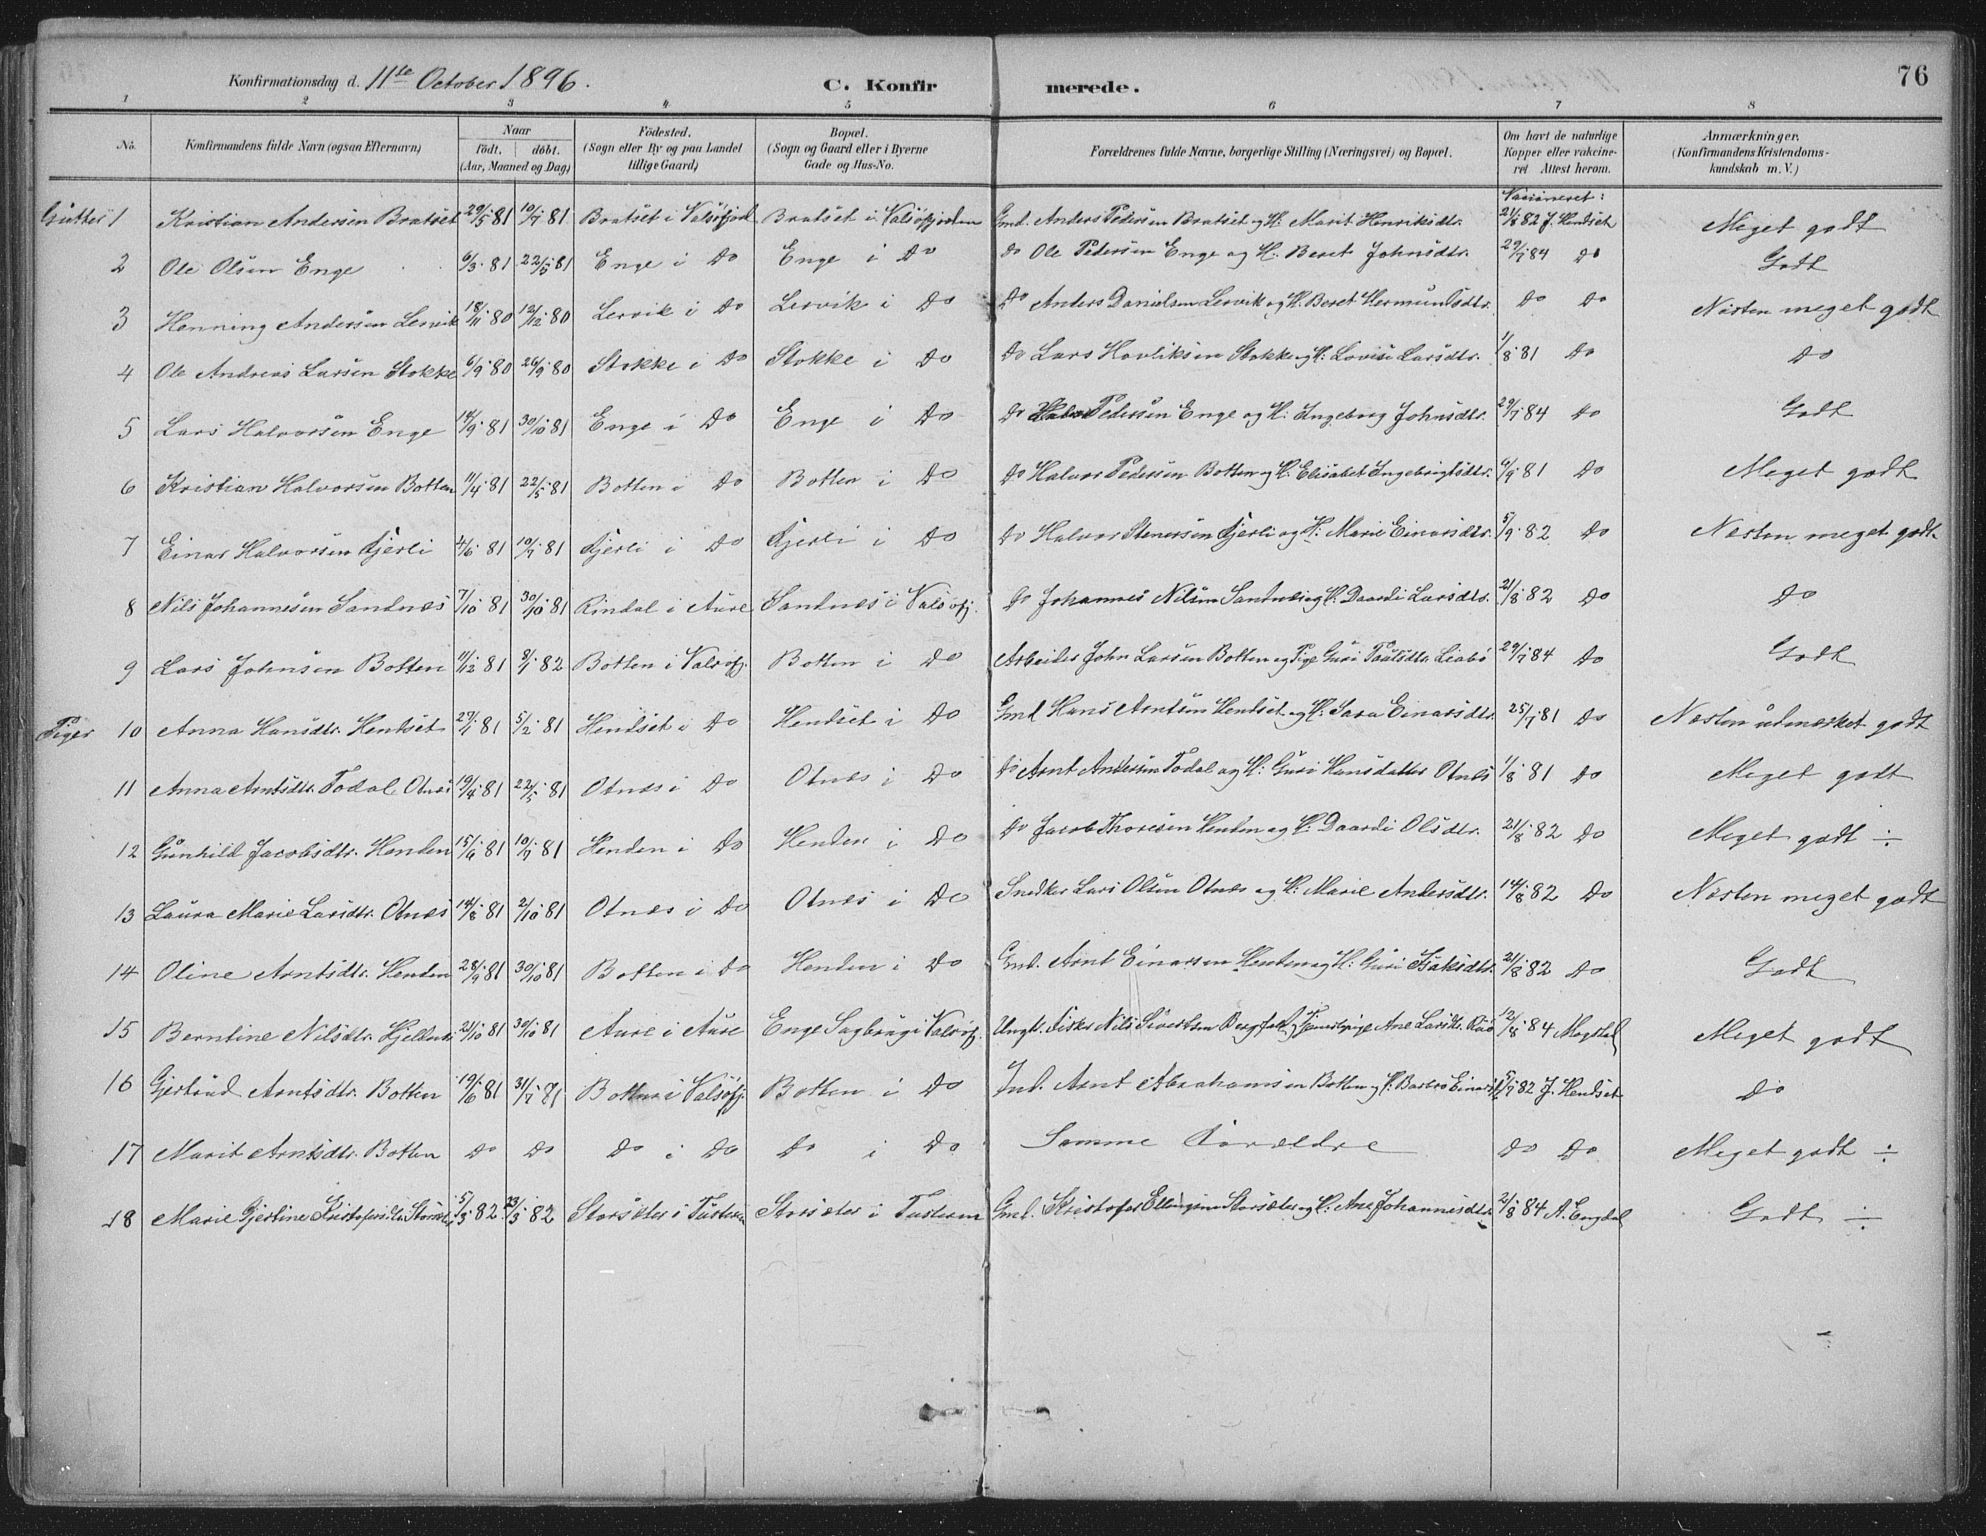 76
Konfirmationsdag d. 11te October 1896.
C. Konfirmerede.
1 2 3 4 5 6 7 8
No. Konfirmandens fulde Navn (ogsaa Efternavn) Naar födt. döbt. (Aar, Maaned og Dag) Födested. (Sogn eller By og paa Landet tillige Gaard) Bopæl. (Sogn og Gaard eller i Byerne Gade og Hus-No. Forældrenes fulde Navne, borgerlige Stilling (Næringsvei) og Bopæl. Om havt de naturlige Kopper eller vakcineret. Attest herom. Anmærkninger. (Konfirmandens Kristendomskundskab m. V.)
Vaccineret:
Gutter 1 Kristian Andersen Bratset 29/5 81 10/7 81 Bratset i Valsöfjord Bratset i Valsöfjorden Gmd. Anders Pedersen Bratset og H. Marit Henriksdtr. 21/8 82 J. Hendset Meget godt
2 Ole Olsen Enge 6/3 81 22/5 81 Enge i Do Enge i Do Do Ole Pedersen Enge og H. Beret Johnsdtr. 29/7 84 Do Godt
3 Henning Andersen Lervik 18/11 80 12/12 80 Lervik i Do Lervik i Do Do Anders Danielsen Lervik og H. Beret Hermundsdtr. Do Do Næsten meget godt
4 Ole Andreas Larsen Stokke 6/9 80 26/9 80 Stokke i Do Stokke i Do Do Lars Stokke og H. Lovise Larsdtr. 1/8 81 Do Do
5 Lars Halvorsen Enge 14/9 81 30/10 81 Enge i Do Enge i Do Do Halvor Pedersen Enge og H. Ingeborg Johnsdtr. 29/7 84 Do Godt
6 Kristian Halvorsen Botten 11/4 81 22/5 81 Botten i Do Botten i Do Do Halvor Pedersen Botten og H. Elisabet Ingebrigtsdtr. 6/9 81 Do Meget godt
7 Einar Halvorsen Kjerli 4/6 81 10/7 81 Kjerli i Do Kjerli i Do Do Halvor Stenersen Kjerli og H. Marie Einarsdtr. 5/9 82 Do Næsten meget godt
8 Nils Johannesen Sandnæs 7/10 81 30/10 81 Rindal i Aure Sandnæs i Valsöfj. Do Johannes Nilsen Sandnæs og H. Daardi Larsdtr. 21/8 82 Do Do
9 Lars Johnsen Botten 11/12 81 8/1 82 Botten i Valsöfj. Botten i Do Arbeider John Larsen Botten og Pige Guri Paulsdtr. Liabö 29/7 84 Do Godt
Piger 10 Anna Hansdtr. Hendset 27/1 81 5/2 81 Hendset i Do Hendset i Do Gmd Hans Arntsen Hendset og H. Sara Einarsdtr. 25/7 81 Do Næsten udmærket godt
11 Anna Arntsdtr. Todal Otnes 19/4 81 22/5 81 Otnæs i Do Otnæs i Do Do Arnt Andersen Todal og H. Guri Hansdatter Otnes 1/8 81 Do Meget godt
12 Gunhild Jacobsdtr. Henden 15/4 81 10/7 81 Henden i Do Henden i Do Do Jacob Thoresen Henden og H. Daardi Olsdtr. 21/8 82 Do Meget godt ÷
13 Laura Marie Larsdtr. Otnæs 14/8 81 2/10 81 Otnæs i Do Otnæs i Do Snedker Lars Olsen Otnæs og H. Marie Andersdtr. 14/8 82 Do Næsten meget godt
14 Oline Arntsdtr. Henden 28/9 81 30/10 81 Botten i Do Henden i Do Gmd. Arnt Einarsen Henden og H. Guri Isaksdtr. 21/8 82 Do Godt
15 Berntine Nilsdtr. 21/10 81 30/10 81 Aure i Aure Enge Sagbrug i Valsöfj. Ungk. Fisker Nils Sivertsen og Tjenestpige Ane Larsdtr. 84 Meget godt
16 Gjertrud Arntsdtr. Botten 19/6 81 31/7 81 Botten i Valsöfj. Botten i Do Ind. Arnt Abrahamsen Botten og H. Barbro 5/9 82 J. Hendset Do
17 Marit Arntsdtr. Botten Do Do Do i Do Do i Do Samme Forældre Do Do Meget godt ÷
18 Marie Gjertine Kristofersdtr. Storsæter 5/3 82 82 Storsæter i Tusteren Storsæter i Tusteren Gmd. Kristofer Ellingsen Storsæter og H. Ane Johannesdtr. 21/8 84 A. Engdal Godt ÷